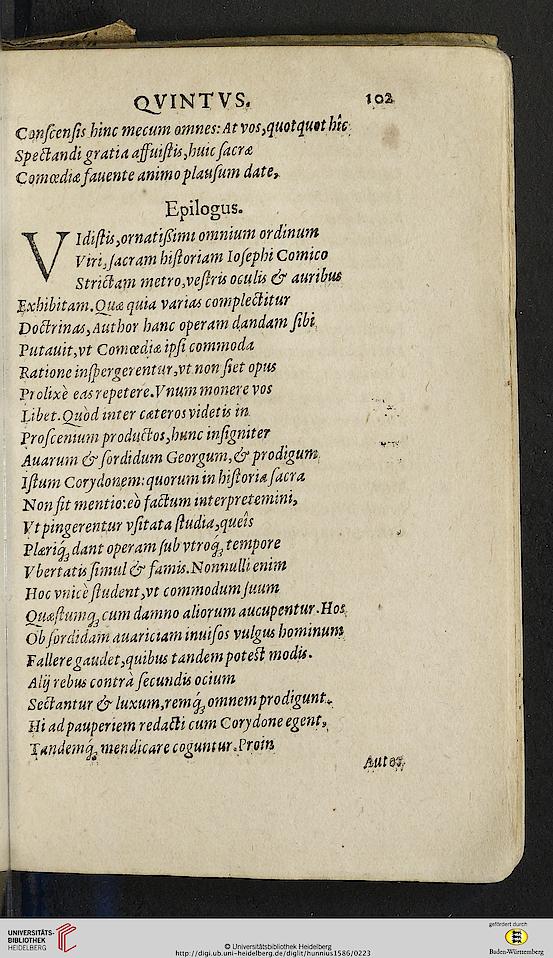 QVINTVS. 102
Conſcenſis hinc mecum omnes: At vos, quotquot hîc
Spectandi gratia affuiſtis, huic ſacræ
Comœdiæ fauente animo plauſum date,
Epilogus.
VIdiſtis, ornatißimi omnium ordinum
Viri, ſacram hiſtoriam Ioſephi Comico
Strictam metro, veſtris oculis & auribus
Exhibitam. Quæ quia varias complectitur
Doctrinas, Author hanc operam dandam ſibi
Putauit, vt Comœdiæ ipſi commoda
Ratione inſpergerentur, vt non ſiet opus
Prolixè eas repetere. Vnum monere vos
Libet. Quòd inter cæteros videtis in
Proſcenium productos, hunc inſigniter
Auarum & ſordidum Georgum, & prodigum
Iſtum Corydonem: quorum in hiſtoria ſacra
Non fit mentio: eò factum interpretemini,
Vt pingerentur vſitata ſtudia, queîs
Plæriq́; dant operam ſub vtroq́; tempore
Vbertatis ſimul & famis. Nonnulli enim
Hoc vnicè ſtudent, vt commodum ſuum
Quæſtumq́; cum damno aliorum aucupentur. Hos
Ob ſordidam auariciam inuiſos vulgus hominum
Fallere gaudet, quibus tandem poteſt modis.
Alij rebus contrà ſecundis ocium
Sectantur & luxum, remq́; omnem prodigunt.
Hi ad pauperiem redacti cum Corydone egent,
Tandemq́; mendicare coguntur. Proin
UNIVERSITÄTS-
BIBLIOTHEK
HEIDELBERG
© Universitätsbibliothek Heidelberg
http://digi.ub.uni-heidelberg.de/diglit/hunnius1586/0223
gefördert durch
Baden-Württemberg